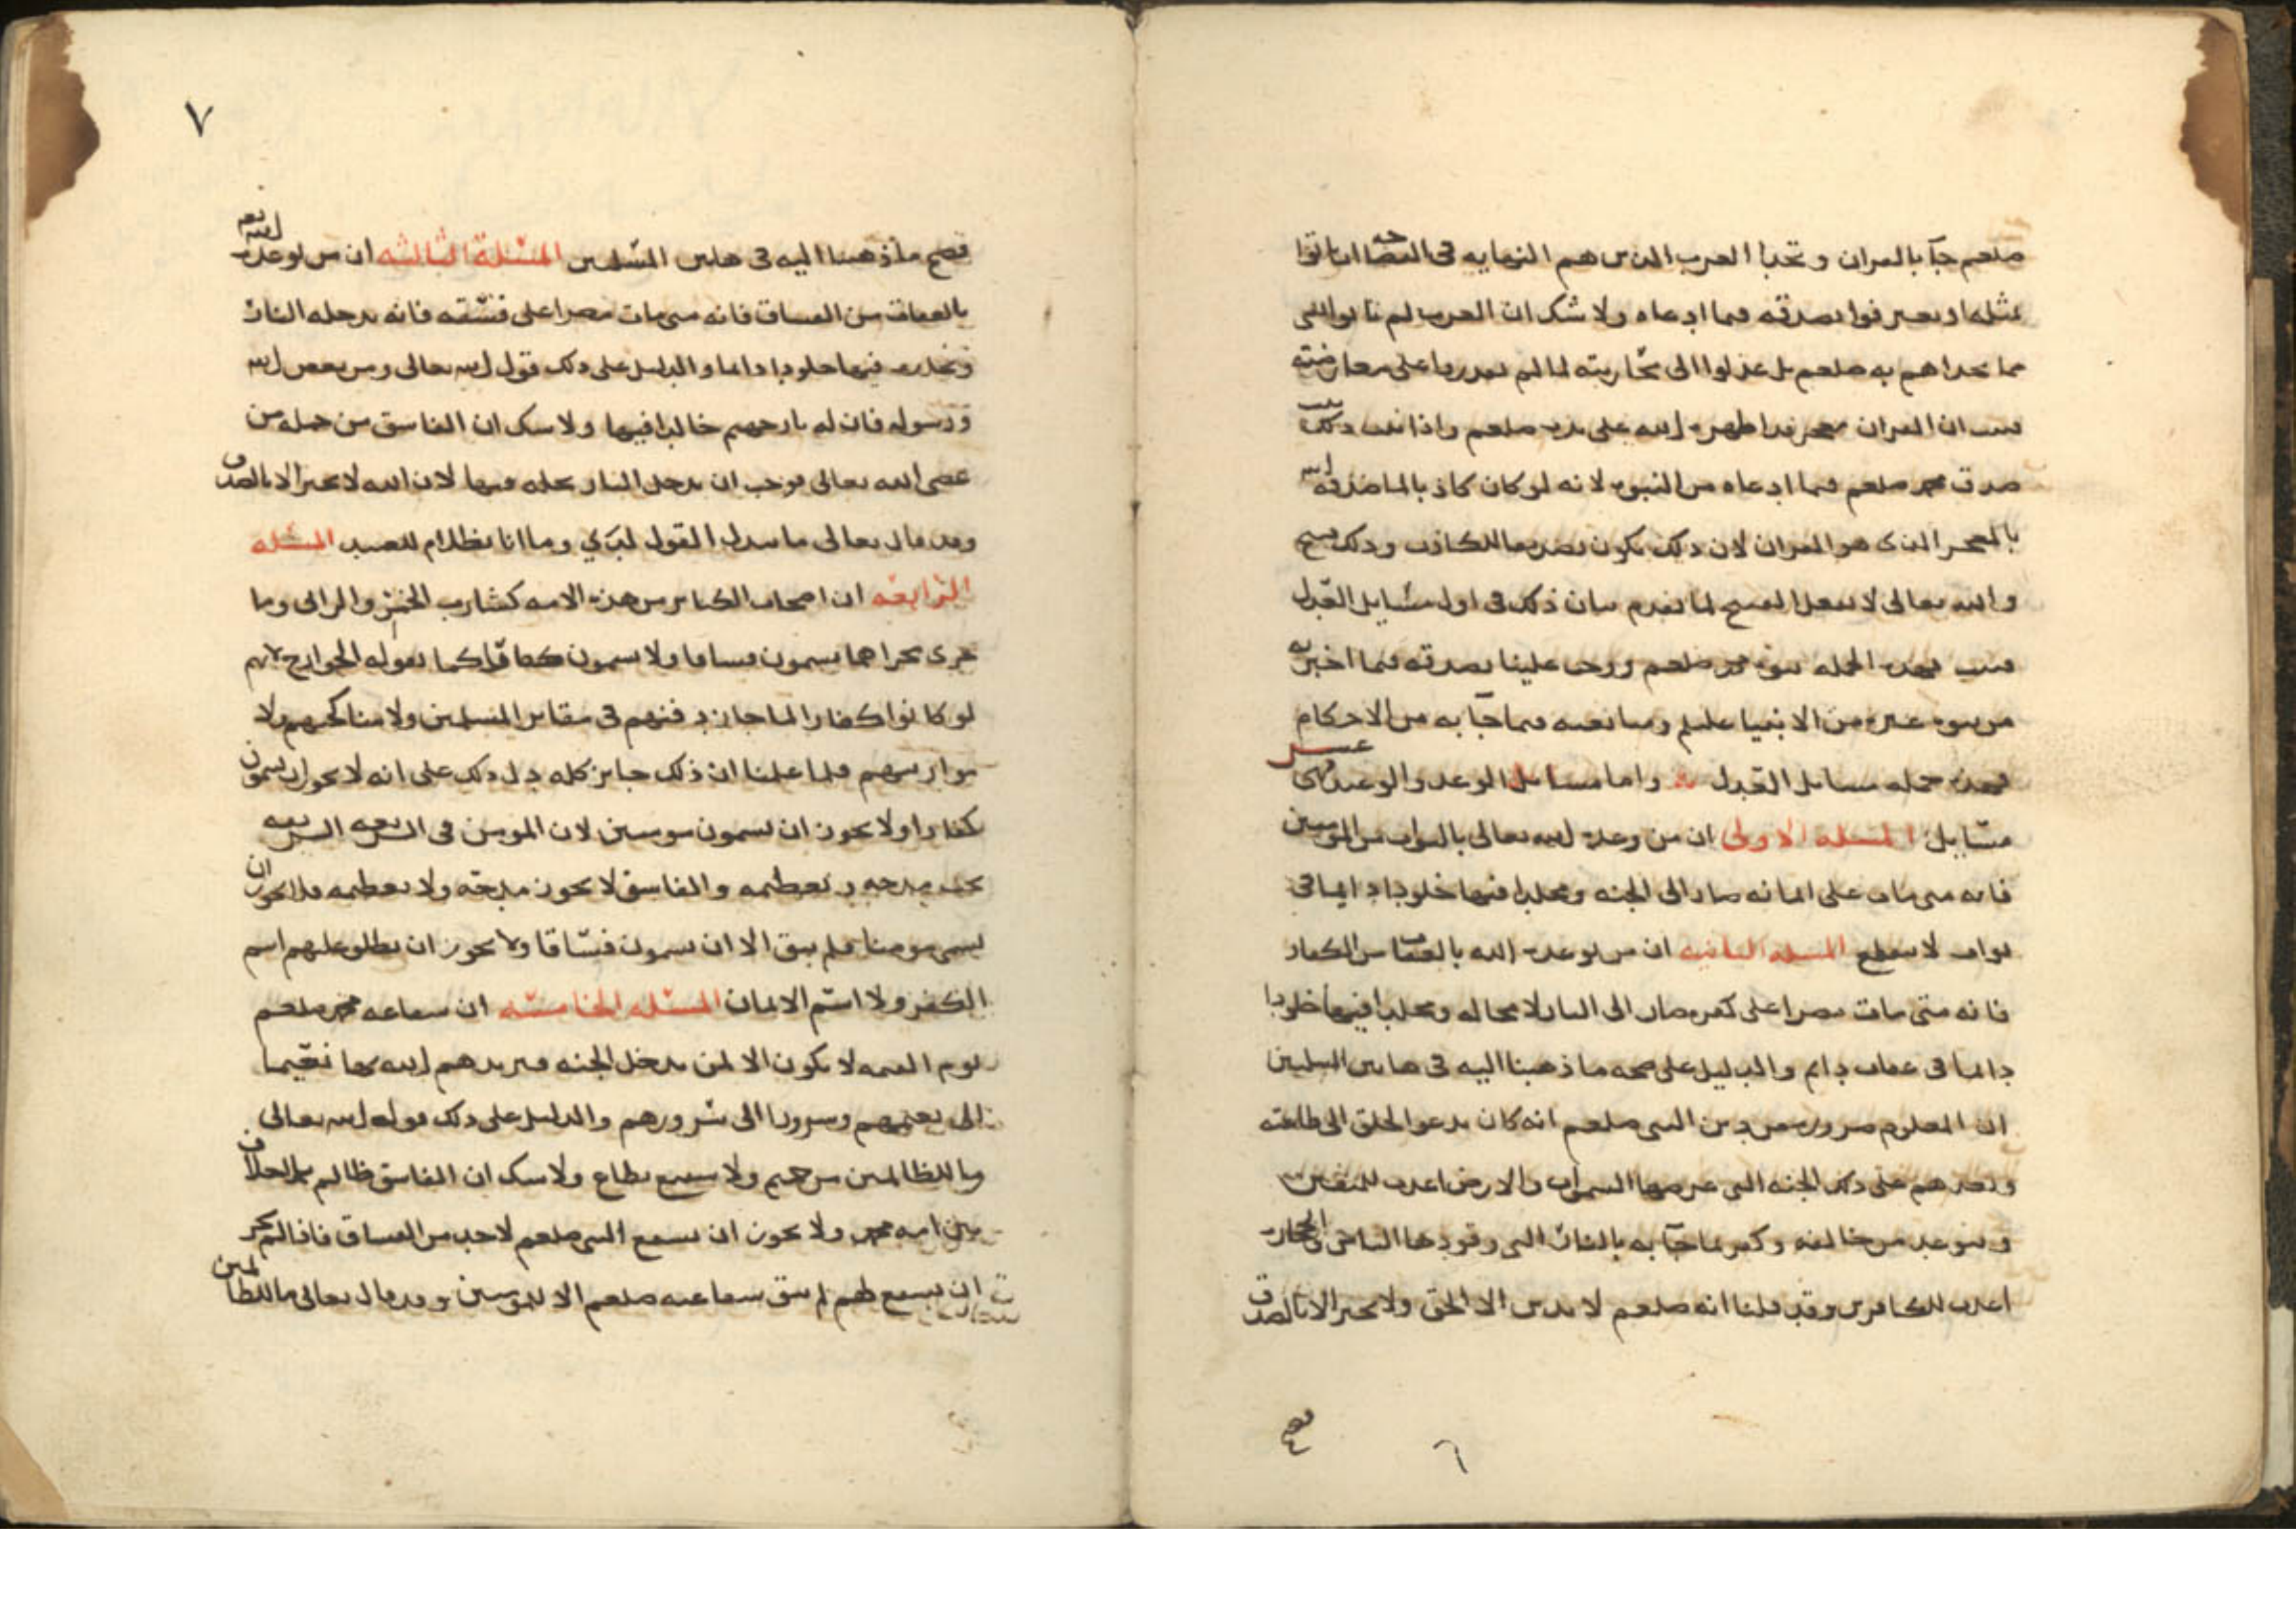 صلعم جآ بالقران وتحدا العرب الذين هم النهايه في الفصاحه ان ياتوا
بمثله او يعترفوا بصدقه فيما ادعاه ولا شك ان العرب لم ياتوا بشي
مما تحداهم به صلعم بل عدلوا الى محاربته لما لم يقدروا على معارضته
فثبت ان القران معجز قد اظهره الله على يديه صلعم واذا ثبت ذلك ثبت
صدق محمد صلعم فيما ادعاه من النبوه لانه لو كان كاذبا لما صدقه الله
بالمعجز الذي هو القران لان ذلك يكون تصديقا للكاذب وذلك قبيح
والله تعالى لا يفعل القبيح لما تقدم بيان ذلك في اول مسايل العدل
فثبت بهذه الجمله نبوه محمد صلعم ووجب علينا تصديقه فيما اخبر به
من نبوه غيره من الانبيا عليلم ومتابعته فيما جآ به من الاحكام
فهذه جمله مسايل العدل واما مسايل الوعد والوعيد فهي عشر
مسايل المسئله الاولى ان من وعده الله تعالى بالثواب من المومنين
فانه متى مات على ايمانه صار الى الجنه ومخلدا فيها خلودا دايما في
ثواب لا ينقطع المسئله الثانيه ان من توعده الله بالعقاب من الكفار
فانه متى مات مصرا على كفره صار الى النار لا محاله ومخلدا فيها خلودا
دايما في عقاب دايم والدليل على صحه ما ذهبنا اليه في هاتين المسئلتين
ان المعلوم ضروره من دين النبي صلعم انه كان يدعو الخلق الى طاعته
ويعدهم على ذلك الجنه التي عرضها السموات والارض اعدت للمتقين
ويتوعد من خالفه وكفر بما جآ به بالنار التي وقودها الناس والحجاره
اعدت للكافرين وقد قلنا انه صلعم لا يدين الا الحق ولا يخبر الا بالصدق
٦
٧
فصح ما ذهبنا اليه في هاتين المسئلتين المسئلة الثالثه ان من توعده الله تعه
بالعقاب من الفساق فانه متى مات مصرا على فسقه فانه يدخله النار
ويخلده فيها خلودا دايما والدليل على ذلك قول الله تعالى ومن يعص الله
ورسوله فان له نار جهنم خالدا فيها ولا شك ان الفاسق من جمله من
عصى الله تعالى فوجب ان يدخل النار ويخلد فيها لان الله لا يخبر الا بالصدق
وقد قال تعالى ما يبدل القول لدي وما انا بظلام للعبيد المسئله
الرابعه ان اصحاب الكباير من هذه الامه كشارب الخمر والزاني وما
جرى مجراهما يسمون فساقا ولا يسمون كفارا كما تقوله الخوارج لانهم
لو كانوا كفارا لما جاز دفنهم في مقابر المسلمين ولا مناكحتهم ولا
موارثتهم فلما علمنا ان ذلك جايز كله دل ذلك على انه لا يجوز ان يسمون
كفارا ولا يجوز ان يسمون مومنين لان المومن في الشريعه الشريعه
يجب مدحه وتعظيمه والفاسق لا يجوز مدحه ولا تعظيمه فلا يجوز ان
يسمى مومنا فلم يبق الا ان يسمون فساقا ولا يجوز ان يطلق عليهم اسم
الكفر ولا اسم الايمان المسئله الخامسه ان شفاعه محمد صلعم
يوم القيمه لا تكون الا لمن يدخل الجنه فيزيدهم الله بها نعيما
الى نعيمهم وسرورا الى سرورهم والدليل على ذلك قوله الله تعالى
وما للظالمين من حميم ولا شفيع يطاع ولا شك ان الفاسق ظالم بلا خلاف
بين امه محمد ولا يجوز ان يشفع النبي صلعم لاحد من الفساق فاذا لم يجز
ان يشفع لهم لم يبق شفاعته صلعم الا للمومنين وقد قال تعالى ما للظالمين